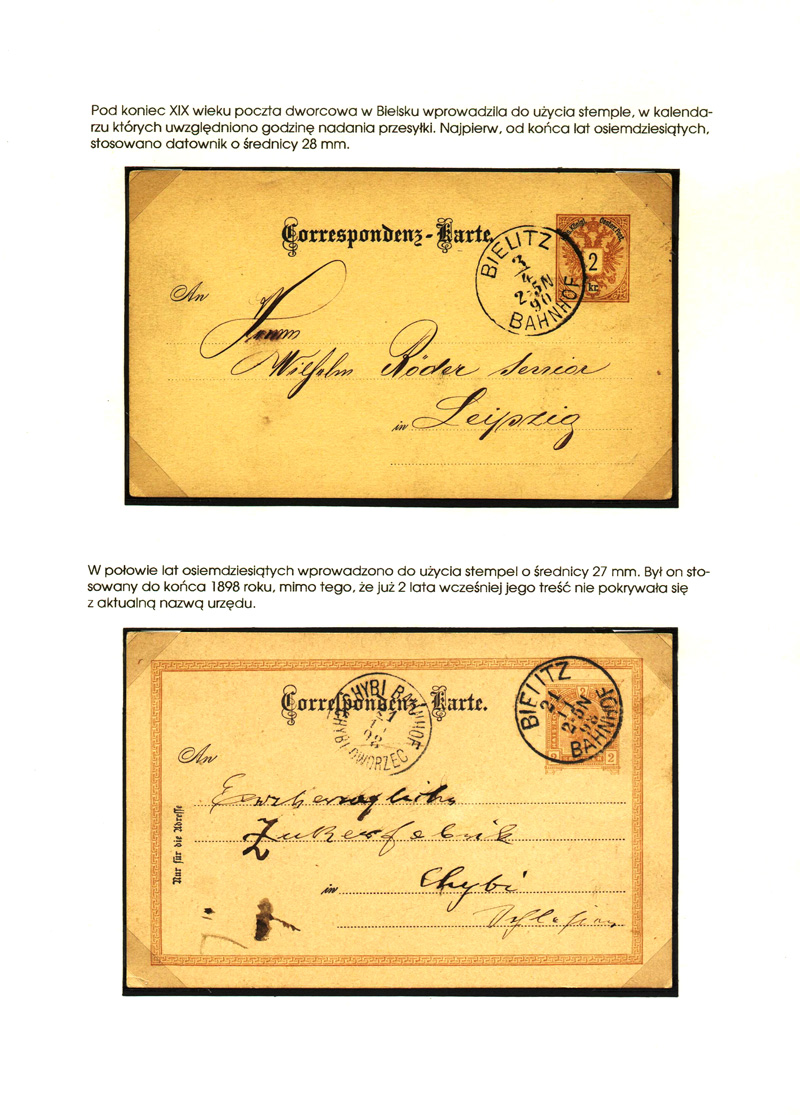 Pod koniec XIX wieku poczta dworcowa w Bielsku wprowadzila do użycia stemple, w kalenda-
rzu których uwzględniono godzinę nadania przesyłki. Najpierw, od końca lat osiemdziesiątych,
stosowano datownik o średnicy 28 mm.
Correspondenz-Karte.
BIELITZ
3/4
2-5N
90
BAHNHOF
2
kr.
An
Wilhelm Röder Senior
in Leipzig
W połowie lat osiemdziesiątych wprowadzono do użycia stempel o średnicy 27 mm. Był on sto-
sowany do końca 1898 roku, mimo tego, że już 2 lata wcześniej jego treść nie pokrywała się
z aktualną nazwą urzędu.
Correspondenz-Karte.
CHYBI BAHNHOF
98
CHYBI DWORZEC
BIELITZ
21
11
2-5N
98
BAHNHOF
2
2 2
An
Erzherzogliche
Zukerfabrik
in Chybi
Schlesien
Nur für die Adresse